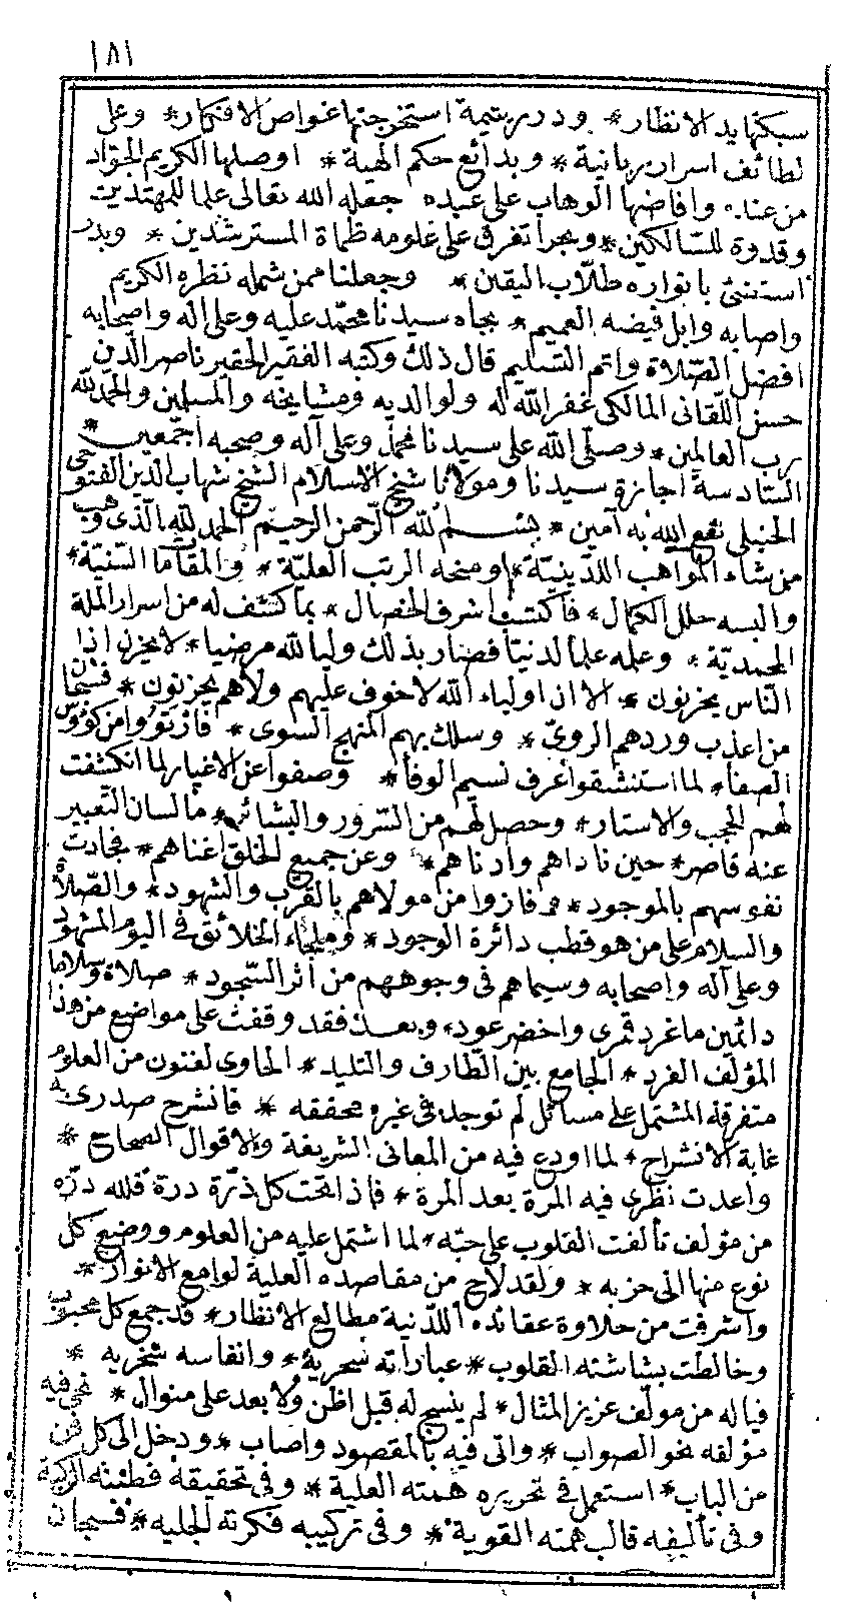 ١٨١
سبكتها يد الانظار * ودرر يتيمة استخرجتها غواص الافكار * وعلى
لطائف اسرار ربانية * وبدائع حكم الهية * اوصلها الكريم الجواد
من عنده وافاضها الوهاب على عبده جعله الله تعالى علما للمهتدين
وقدوة للسالكين * وبحرا تغرق على علومه ظماة المسترشدين * وبدر
استنى بانواره طلّاب اليقين * وجعلنا ممن شمله نظره الكريم
واصابه وابل فيضه العميم * بجاه سيدنا محمّد عليه وعلى اله واصحابه
افضل الصّلاة واتم التسليم قال ذلك وكتبه الفقير الحقير ناصر الدّين
حسن اللّقانى المالكى غفر الله له ولوالديه ومشايخه والمسلمين والحمد لله
رب العالمين * وصلّى الله على سيدنا محمّد وعلى آله وصحبه اجمعين *
السّادسة اجازة سيدنا ومولانا شيخ الاسلام الشيخ شهاب الدين الفتوحى
الحنبلى نفع الله به آمين * بسم الله الرّحمن الرحيم الحمد لله الّذى وهب
من شاء المواهب اللدّينيّة * ومنحه الرتب العليّة * والمقامات السّنيّة *
والبسه حلل الكمال * فاكتست اشرف الخصال * بما كشف له من اسرار الملة
المحمديّة * وعلمه علما لدنيّا فصار بذلك وليا لله مرضيا * لا يحزن اذا
النّاس يحزنون * الا ان اولياء الله لا خوف عليهم ولا هم يحزنون * فسبحان
من اعذب وردهم الروىّ * وسلك بهم المنهج السوى * فارتووا من كؤوس
الصفا * لما استنشقوا عرف نسيم الوفا * وصفوا عن الاغيار لما انكشفت
لهم الحجب والاستار * وحصل لهم من السّرور والبشائر * ما لسان التعبير
عنه قاصر * حين ناداهم وادناهم * وعن جميع الخلق اغناهم * فجادت
نفوسهم بالموجود * وفازوا من مولاهم بالقرب والشهود * والصّلاة
والسلام على من هو قطب دائرة الوجود * وملجاء الخلائق فى اليوم المشهود
وعلى آله واصحابه وسيماهم فى وجوههم من أثر السّجود * صلاة وسلاما
دائمين ما غرد قمرى واخضر عود * وبعد فقد وقفت على مواضع من هذا
المؤلف الفرد * الجامع بين الطّارف والتليد * الحاوى لفنون من العلوم
متفرقة المشتمل على مسائل لم توجد فى غيره محققه * فانشرح صدرى به
غاية الانشراح * لما اودع فيه من المعانى الشريفة والاقوال الصحاح *
واعدت نظرى فيه المرة بعد المرة * فاذا تحت كل ذرّة درة فلله درّه
من مؤلف تألفت القلوب على حبّه * لما اشتمل عليه من العلوم ووضع كل
نوع منها الى حزبه * ولقد لاح من مقاصده العلية لوامع الانوار *
واشرقت من حلاوة عقائده اللّدنية مطالع الانظار * قد جمع كل محبوب
وخالطت بشاشته القلوب * عباراته سحرية * وانفاسه شخريه *
فياله من مولّف عزيز المثال * لم ينسج له قبل اظن ولا بعد على منوال * نحى فيه
مؤلفه نحو الصواب * واتى فيه بالمقصود واصاب * ودخل الى كل فن
من الباب * استعمل فى تحريره همته العلية * وفى تحقيقه فطنته الزكية
وفى تأليفه قالب همته القوية * وفى تركيبه فكرته الجليه * فسبحان